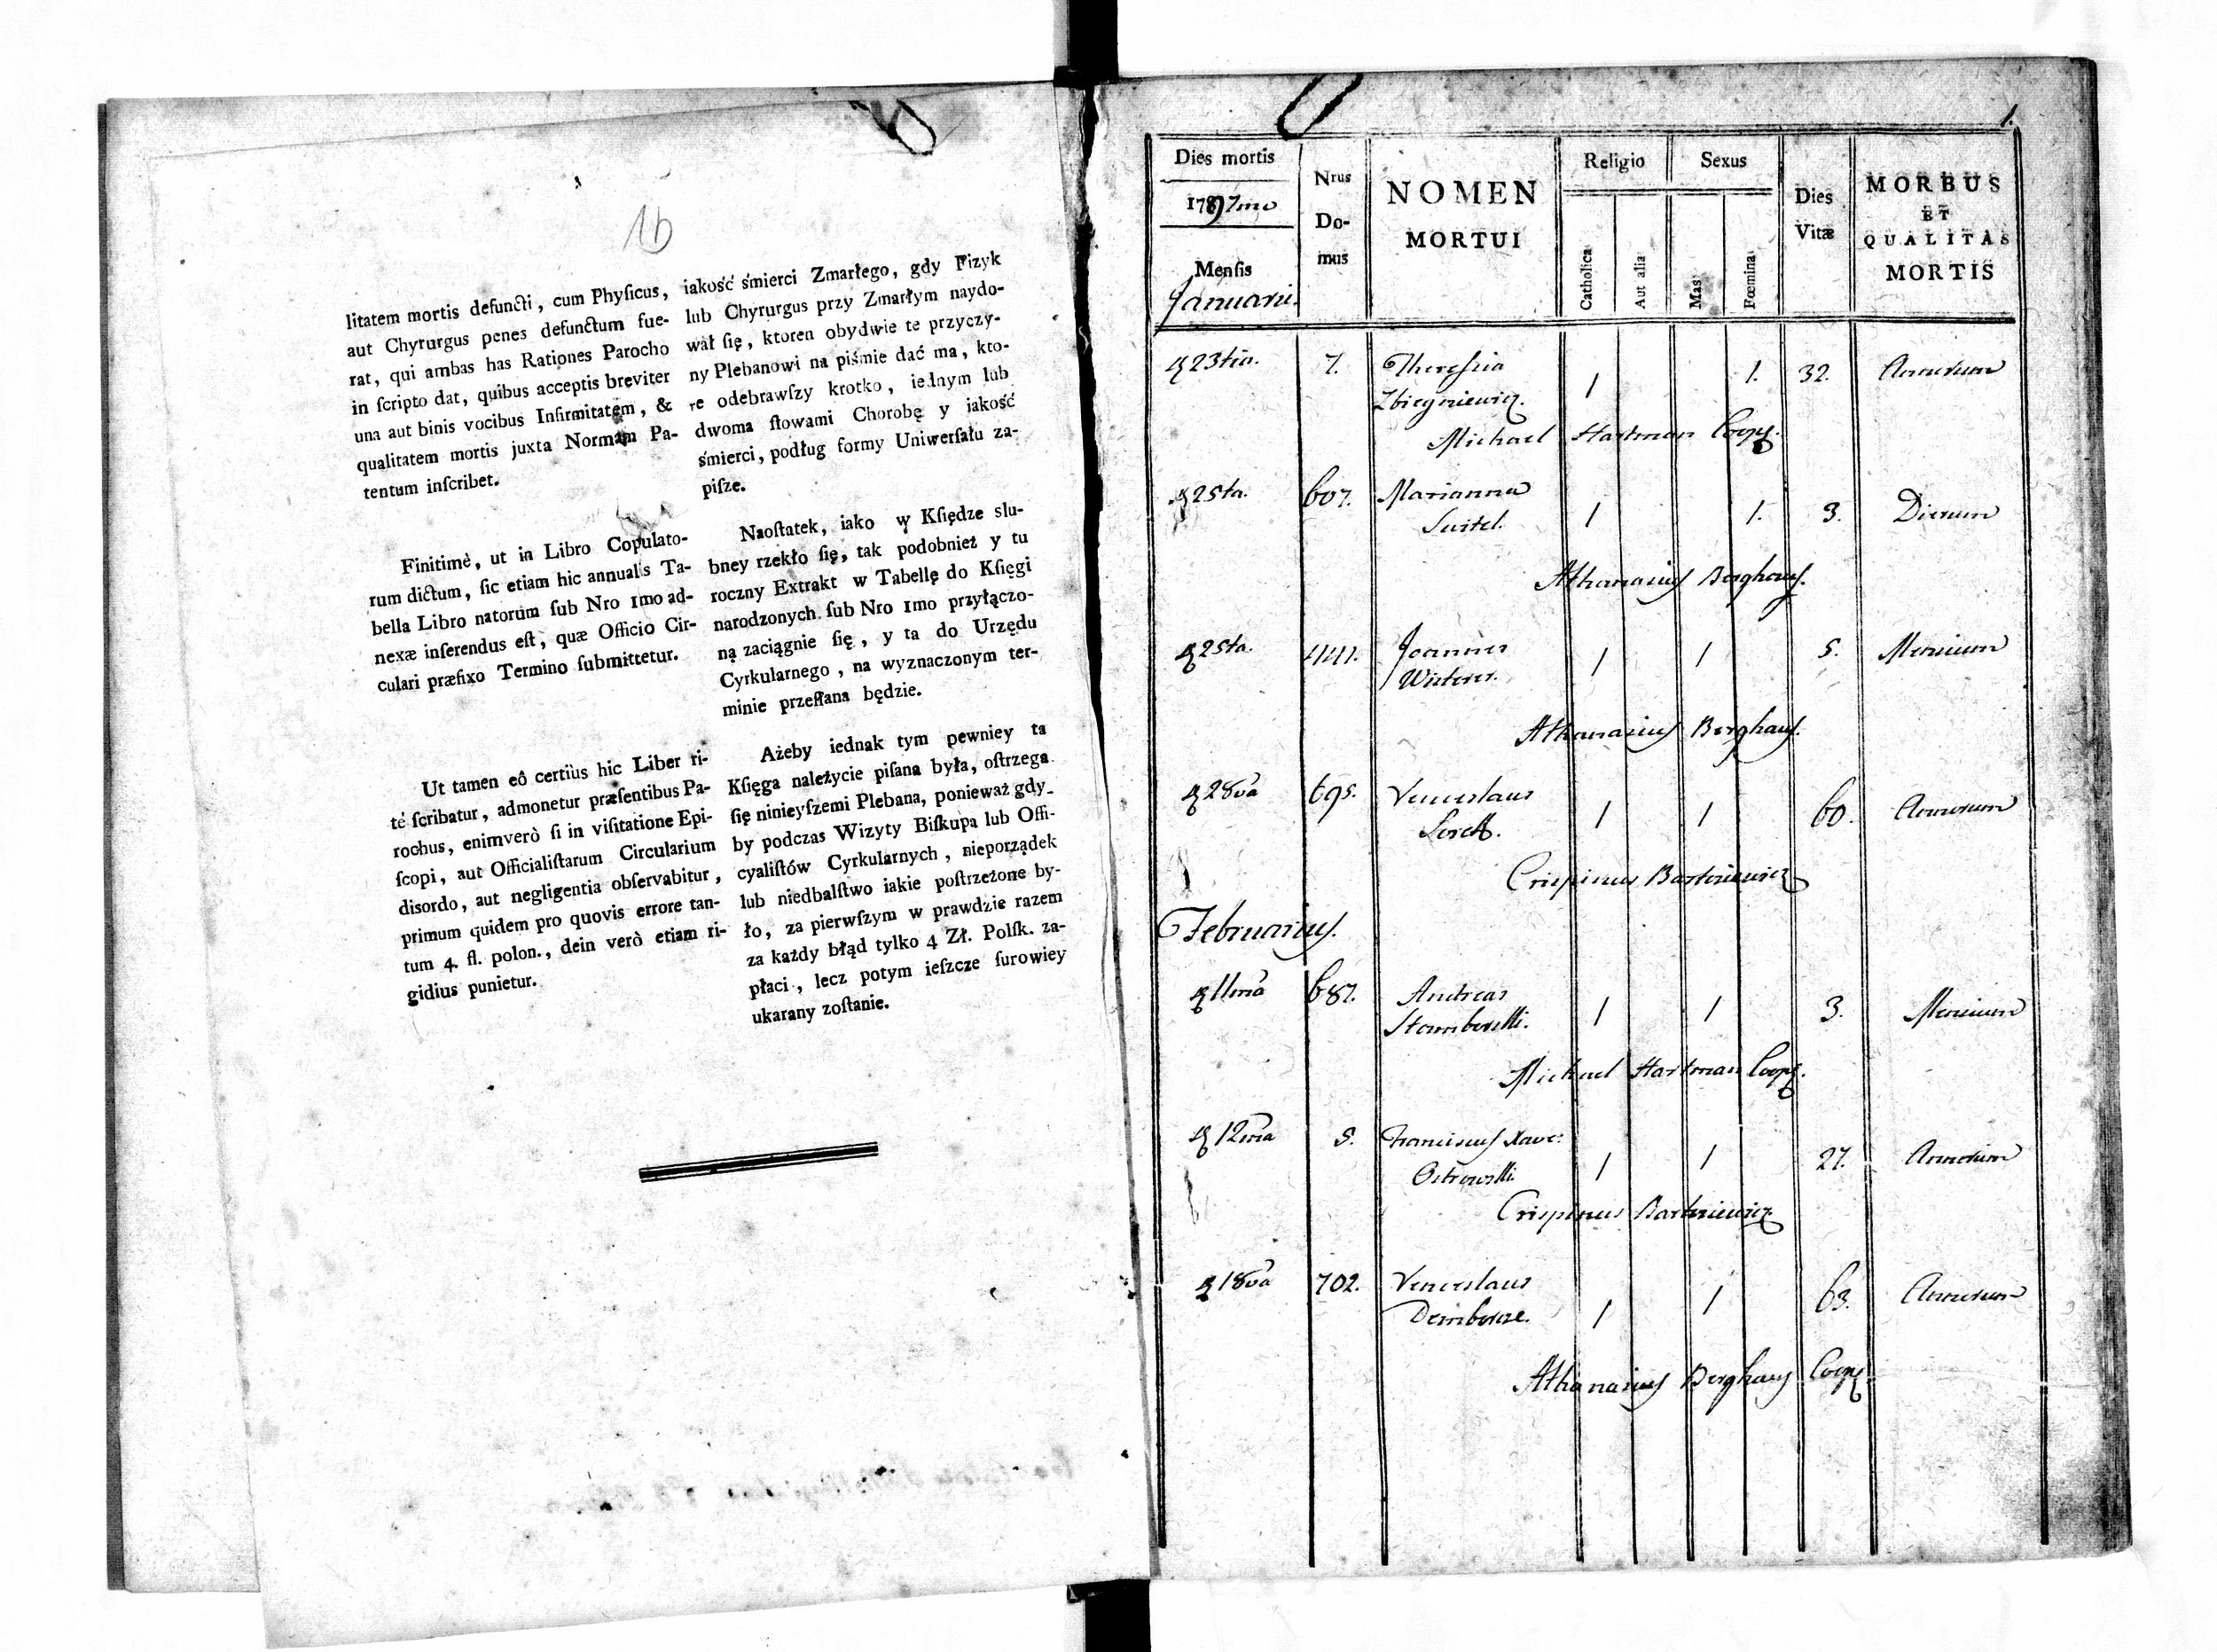 1b
litatem mortis defuncti, cum Phyſicus,
aut Chyrurgus penes defunctum fue-
rat, qui ambas has Rationes Parocho
in ſcripto dat, quibus acceptis breviter
una aut binis vocibus Infirmitatem, &
qualitatem mortis juxta Normam Pa-
tentum inſcribet.
Finitimè, ut in Libro Copulato-
rum dictum, ſic etiam hic annualis Ta-
bella Libro natorum ſub Nro 1mo ad-
nexæ inſerendus eſt, quæ Officio Cir-
culari præfixo Termino ſubmittetur.
Ut tamen eô certiùs hic Liber ri-
té ſcribatur, admonetur præſentibus Pa-
rochus, enimverò ſi in viſitatione Epi-
ſcopi, aut Officialiſtarum Circularium
diſordo, aut negligentia obſervabitur,
primum quidem pro quovis errore tan-
tum 4. fl. polon., dein verò etiam ri-
gidius punietur.
iakość śmierci Zmarłego, gdy Fizyk
lub Chyrurgus przy Zmarłym naydo-
wał ſię, ktoren obydwie te przyczy-
ny Plebanowi na piśmie dać ma, kto-
re odebrawſzy krotko, iednym lub
dwoma ſłowami Chorobę y iakość
śmierci, podług formy Uniwerſału za-
piſze.
Naoſtatek, iako w Kſiędze slu-
bney rzekło ſię, tak podobnież y tu
roczny Extrakt w Tabellę do Kſięgi
narodzonych ſub Nro 1mo przyłączo-
ną zaciągnie ſię, y ta do Urzędu
Cyrkularnego, na wyznaczonym ter-
minie przeſłana będzie.
Ażeby iednak tym pewniey ta
Kſięga należycie piſana była, oſtrzega
ſię ninieyſzemi Plebana, ponieważ gdy-
by podczas Wizyty Biſkupa lub Offi-
cyaliſtów Cyrkularnych, nieporządek
lub niedbalſtwo iakie poſtrzeżone by-
ło, za pierwſzym w prawdzie razem
za każdy błąd tylko 4 Zł. Polſk. za-
płaci, lecz potym ieſzcze ſurowiey
ukarany zoſtanie.
1.
Dies mortis
1797mo
Menſis
Januarii.
Nrus
Do-
mus
NOMEN
MORTUI
Religio
Catholica
Aut alia
Sexus
Mas
Fœmina
Dies
Vitæ
MORBUS
ET
QUALITAS
MORTIS
23tia. 7. Theresia 1 1. 32. Annorum
Zbiegniewicz.
Michael Hartman Coop.
25ta. 607. Marianna 1 1. 3. Dierum
Athanasius Berghaus.
25ta. 441. Joannes 1 1 5. Mensium
Winterer.
Athanasius Berghaus.
28va 695. Venceslaus 1 1 60. Annorum
Crispinus Bartkiewicz
Februarius.
11ma 687. Andreas 1 1 3. Mensium
Michael Hartman Coop.
12ma 5. Franciscus Xave: 1 1 27. Annorum
Ostrowski.
Crispinus Bartkiewicz
18va 702. Venceslaus 1 1 63. Annorum
Athanasius Berghaus Coop